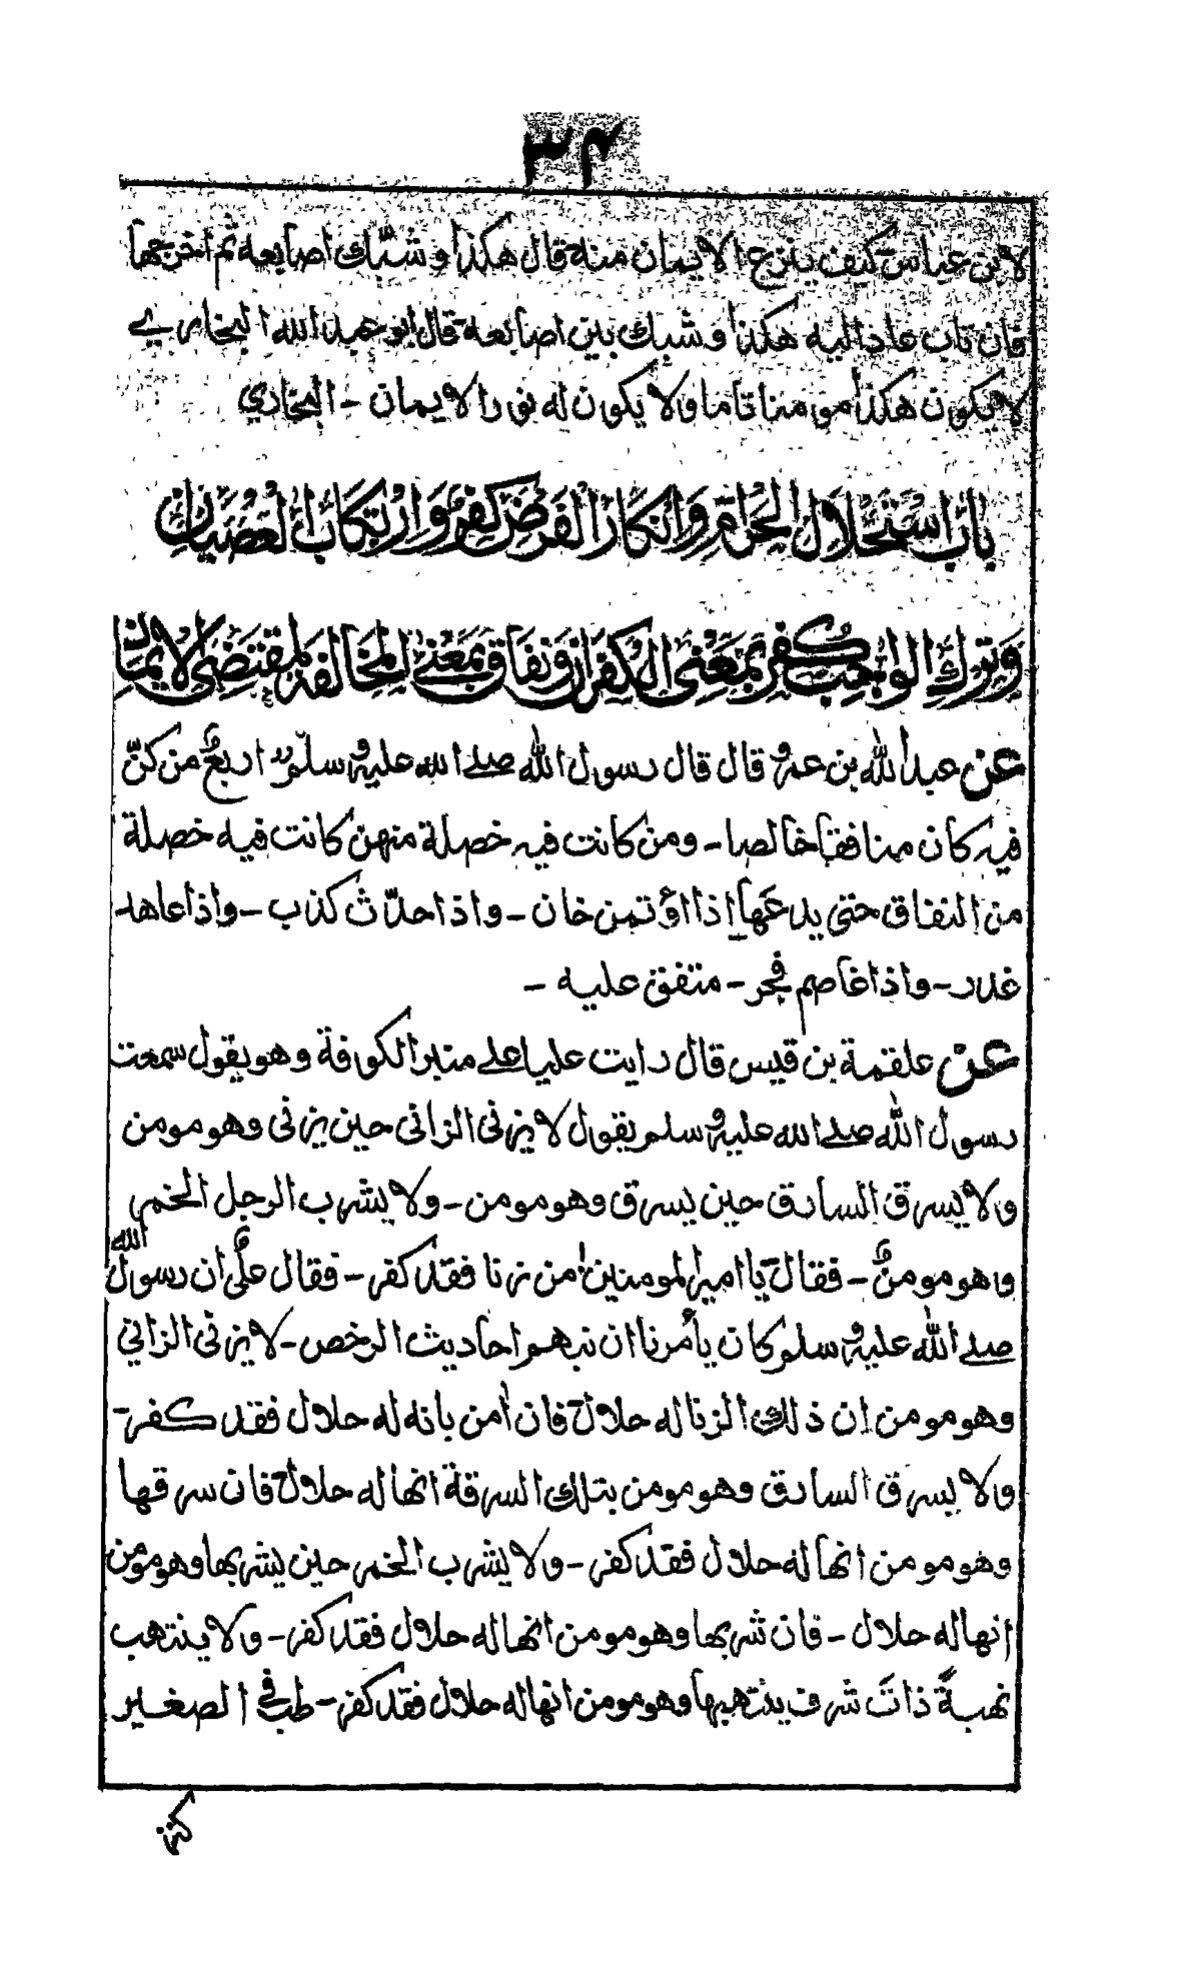 ٣٤
لابن عباس كيف ينزع الايمان منه قال هكذا وشبّك اصابعه ثم اخرجها
فان تاب عاد اليه هكذا وشبك بين اصابعه قال ابو عبد الله البخاري
لا يكون هكذا مومنا تاما ولا يكون له نور الايمان - البخاري
بَابُ اسْتِحْلَالِ الْحَرَامِ وَانْكَارِ الْفَرْضِ كُفْرٌ وَارْتِكَابُ الْعِصْيَانِ
وَتَرْكُ الْوَاجِبِ كُفْرٌ بِمَعْنَى الْكُفْرَانِ وَنِفَاقٌ بِمَعْنَى الْمُخَالَفَةِ لِمُقْتَضَى الْاِيْمَانِ
عن عبد الله بن عمرو قال قال رسول الله صلے الله عليه وسلم اربعٌ من كنّ
فيه كان منافقا خالصا - ومن كانت فيه خصلة منهن كانت فيه خصلة
من النفاق حتى يدعها اذا اؤتمن خان - واذا حدّث كذب - واذا عاهد
غدر - واذا خاصم فجر - متفق عليه -
عن علقمة بن قيس قال رايت عليا علے منبر الكوفة وهو يقول سمعت
رسول الله صلے الله عليه وسلم يقول لا يزنى الزانى حين يزنى وهو مومن
ولا يسرق السارق حين يسرق وهو مومن - ولا يشرب الرجل الخمر
وهو مومنٌ - فقال يا امير المومنين من زنا فقد كفر - فقال علىٌ ان رسول الله
صلے الله عليه وسلم كان يأمرنا ان نبهم احاديث الرخص - لا يزنى الزاني
وهو مومن ان ذلك الزنا له حلال فان اٰمن بانه له حلال فقد كفر -
ولا يسرق السارق وهو مومن بتلك السرقة انها له حلال فان سرقها
وهو مومن انها له حلال فقد كفر - ولا يشرب الخمر حين يشربها وهو مومن
انها له حلال - فان شربها وهو مومن انها له حلال فقد كفر - ولا ينتهب
نهبةً ذات شرف ينتهبها وهو مومن انها له حلال فقد كفر - طب فى الصغير
كنز